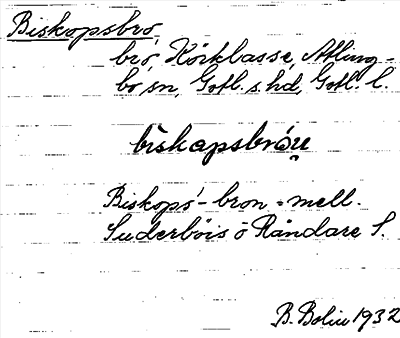 Biskopsbro
bro, Körklasse, Atling-
bo sn, Gotl. s. hd, Gotl. l.
biskapsbróu̯
Biskops-bron mell.
Suderböis ö Råndare S.
B. Bolin 1932